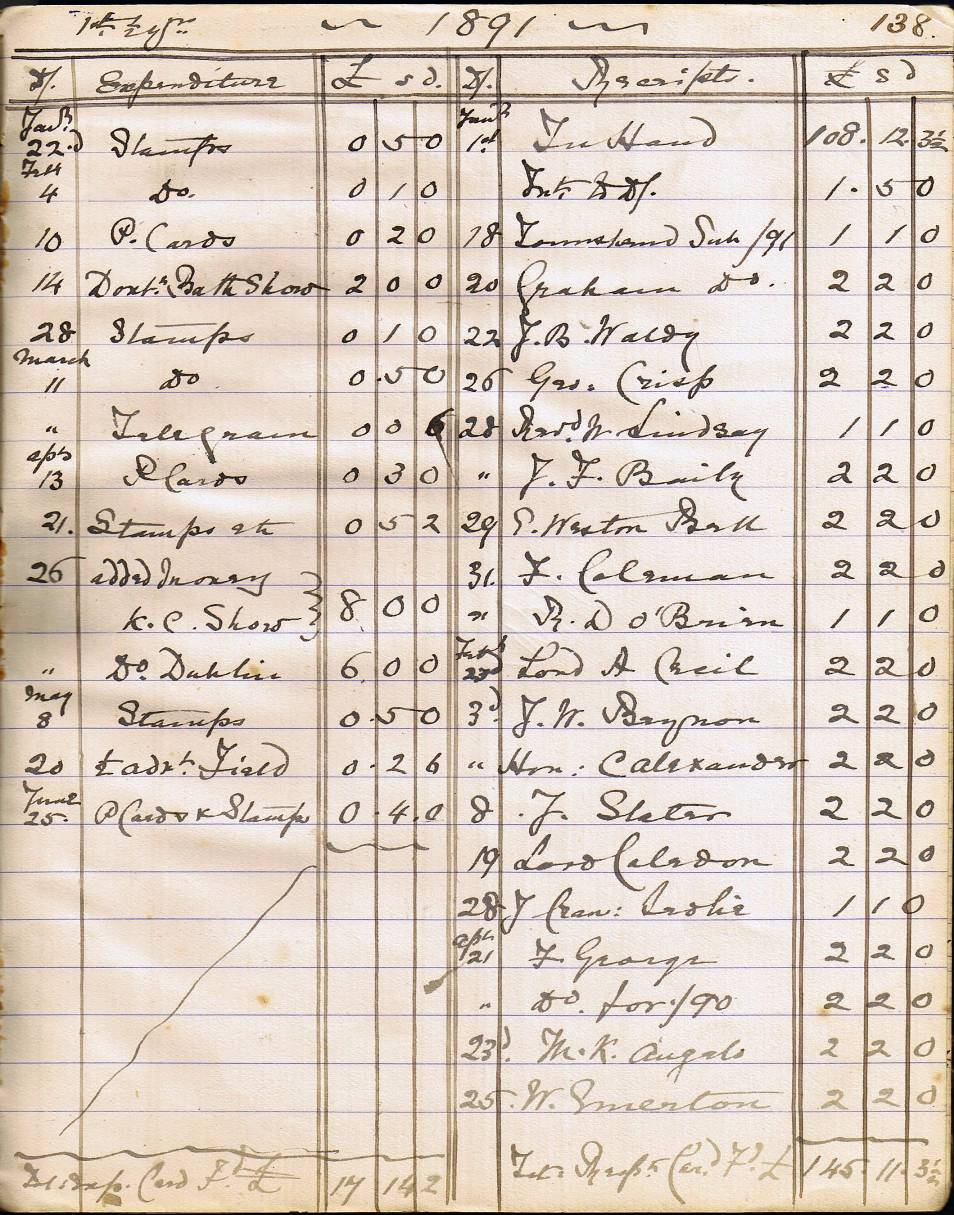 1st ½ yr. 1891 138.
Dt. Expenditure £ s d. Dt. Receipts. £ s d
Jany. 22.d Stamps 0 5 0 Jany 1st In Hand 108. 12. 3½
Feb 4 Do. 0 1 0 Int. D Dt. 1. 5 0
10 P. Cards 0 2 0 18 Townshend Sub /91 1 1 0
14 Dontn. Bath Show 2 0 0 20 Graham Do. 2 2 0
28 Stamps 0 1 0 22 J. B. Waldy 2 2 0
March 11 do 0. 5 0 26 Geo. Crisp 2 2 0
" Telegram 0 0 6 28 Revd. W Lindsay 1 1 0
apr 13 P Cards 0 3 0 " J. F. Baily 2 2 0
21. Stamps etc 0 5 2 29 E. Weston Bell 2 2 0
26 added money 31. F. Coleman 2 2 0
K. C. Show 8 0 0 " R. D O'Brien 1 1 0
" Do. Dublin 6. 0 0 Feb Lord A Cecil 2 2 0
May 8 Stamps 0. 5 0 3d. J. W. Beynon 2 2 0
20 advt. Field 0. 2 6 " Hon: C Alexander 2 2 0
June 25. P Cards & Stamps 0. 4. 0 8 J. Slater 2 2 0
19 Lord Caledon 2 2 0
28 J Craw: Leslie 1 1 0
apr 21 F George 2 2 0
" Do. for /90 2 2 0
23d. M. K. Angelo 2 2 0
25. W. Emerton 2 2 0
Card Fd. £ 17 14 2 Tot. Recpts Card. Fd. £ 145. 11. 3½